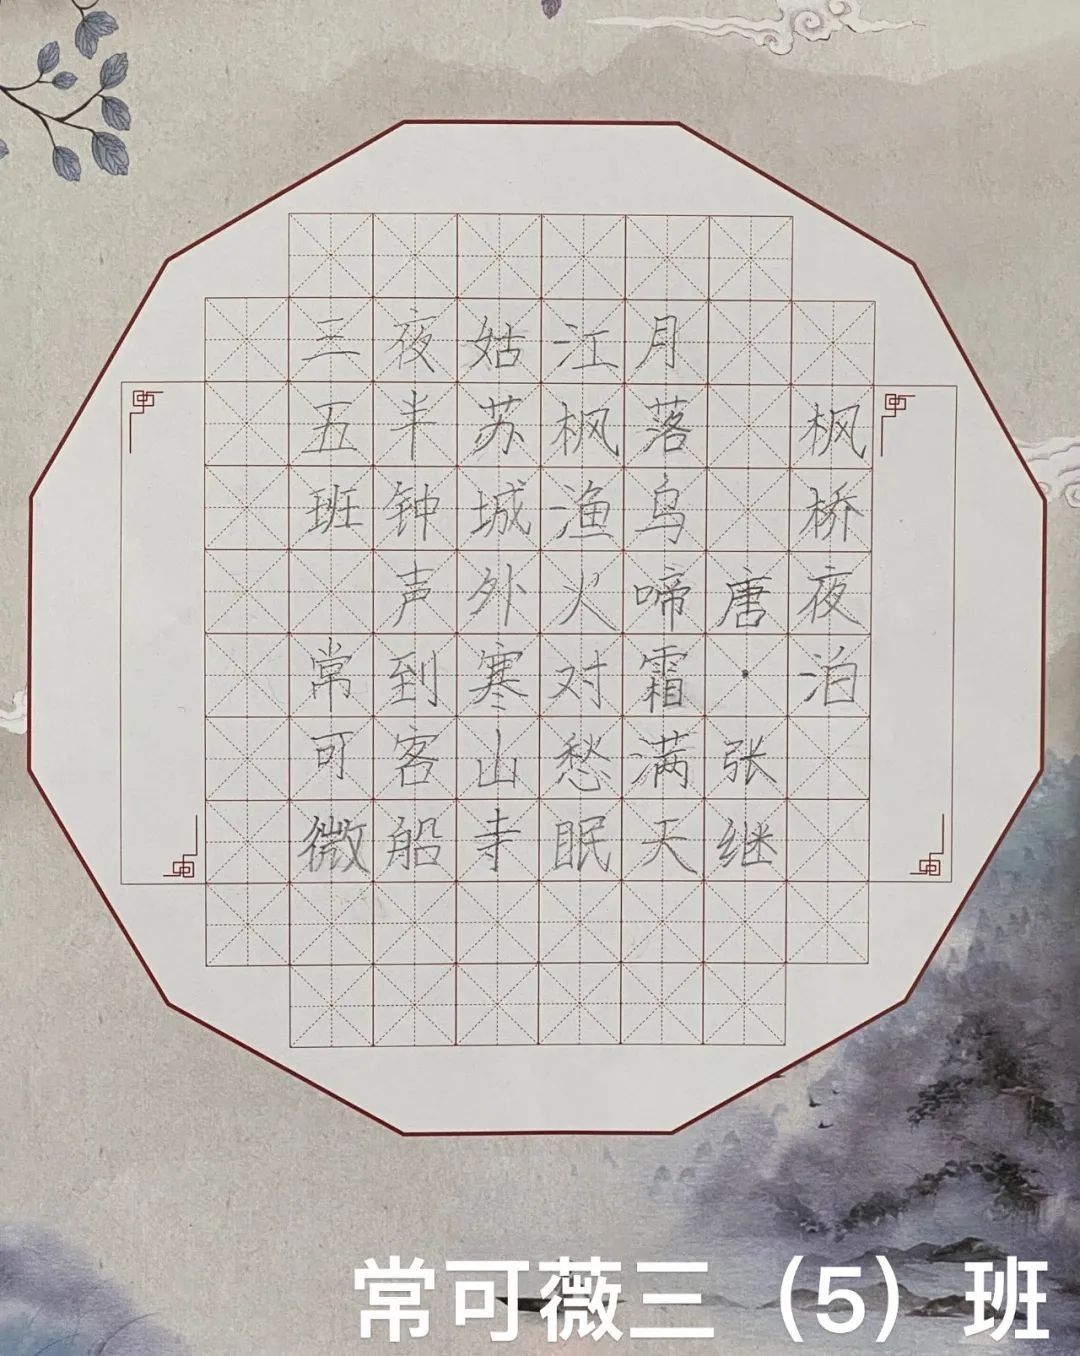 枫桥夜泊
唐·张继
月落乌啼霜满天
江枫渔火对愁眠
姑苏城外寒山寺
夜半钟声到客船
三五班 常可微
常可薇三（5）班